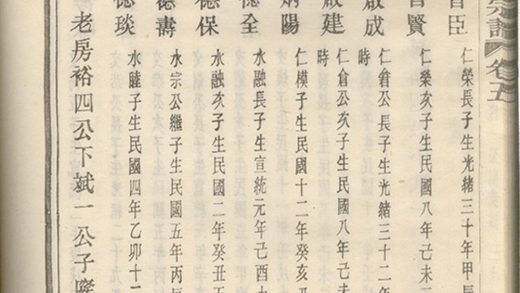 宗譜 卷五
臣 仁榮長子生光緒三十年甲辰
賢 仁榮次子生民國八年己未三
啟成 仁倉公長子生光緒三十二年
時
啟建 仁倉公次子生民國八年己未
時
炳陽 仁模子生民國十二年癸亥
德全 水融長子生宣統元年己酉
德保 水融次子生民國二年癸丑
德壽 水宗公繼子生民國五年丙
德琰 水睦子生民國四年乙卯十二
老房裕四公下斌一公子